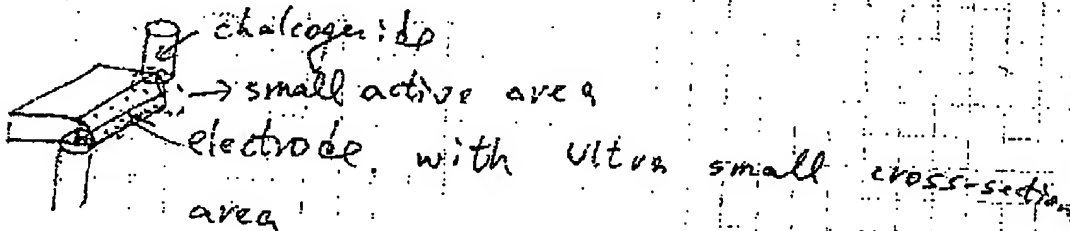 chalcogenide
→ small active area
electrode. with Ultra small cross-section
area